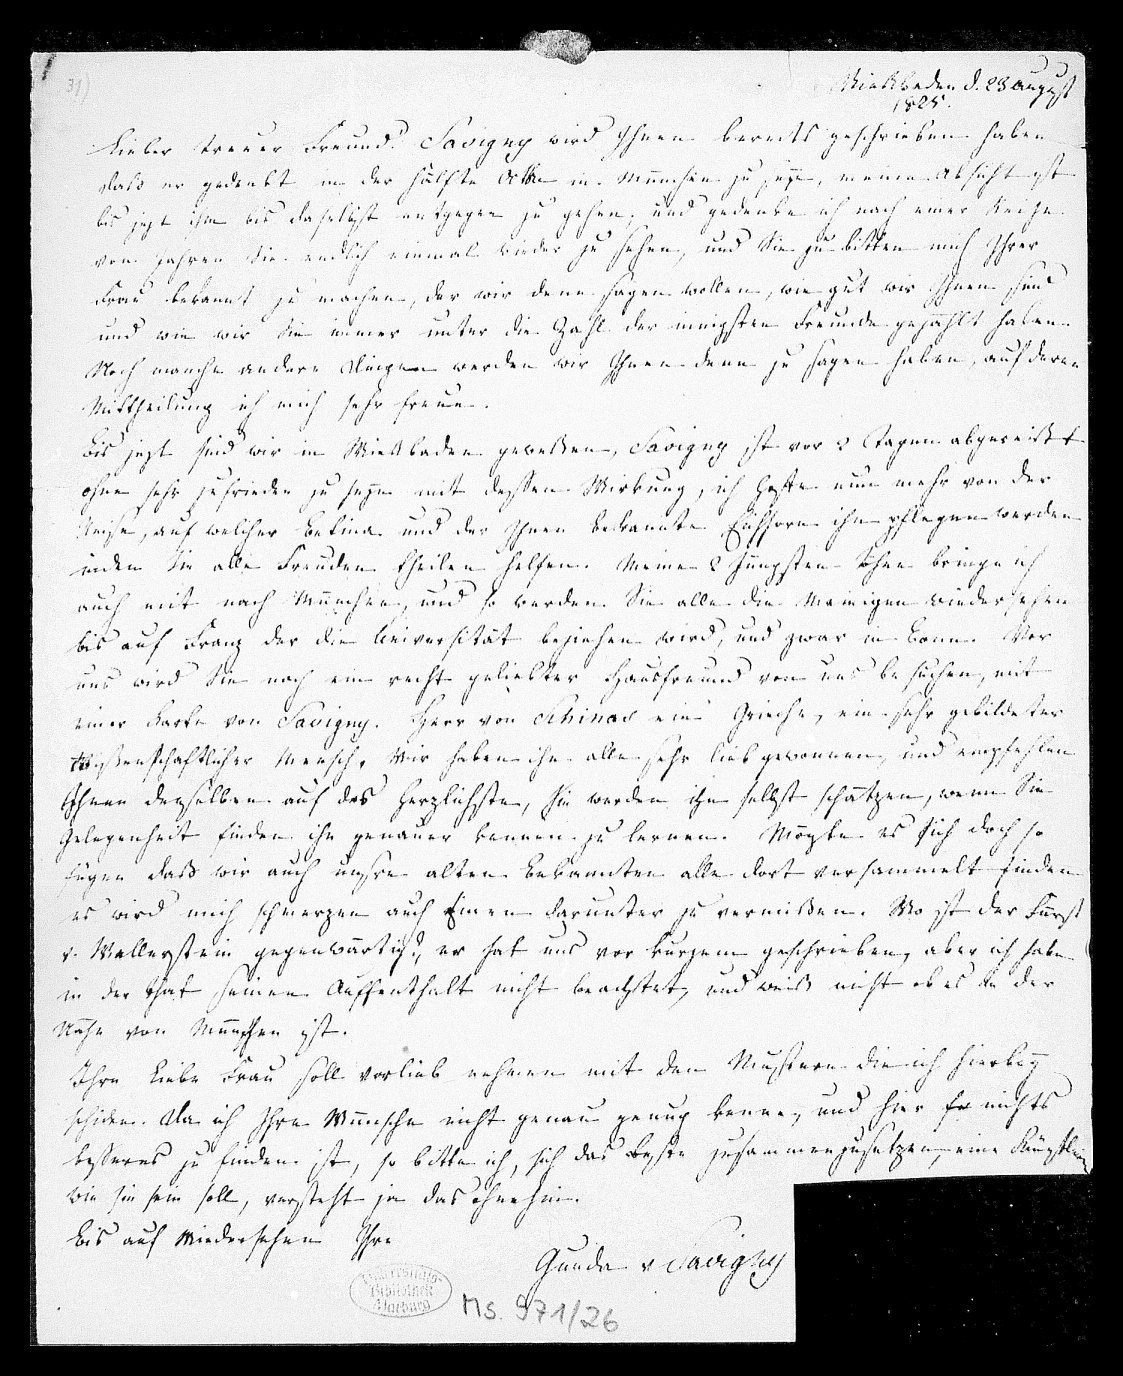 31)
Wießbaden d. 23 august
1825.
Lieber treuer Freund! Savigny wird Ihnen bereits geschrieben haben
daß er gedenkt in der Hälfte Octbr in München zu seyn, meine Absicht ist
bis jezt ihm bis daselbst entgegen zu gehen, und gedenke ich nach einer Reihe
von Jahren Sie endlich einmal wieder zu sehen, und Sie zu bitten mich Ihrer
Frau bekannt zu machen, der wir denn sagen wollen, wie gut wir Ihnen sind
und wie wir Sie immer unter die Zahl der innigsten Freunde gezählt haben.
Noch manche andere Dinge werden wir Ihnen denn zu sagen haben, auf deren
Mittheilung ich mich sehr freue.
Bis jezt sind wir in Wießbaden geweßen, Savigny ist vor 2 Tagen abgereißt
ohne sehr zufrieden zu seyn mit dessen Wirkung, ich hoffe nun mehr von der
Reise, auf welcher Betina und der Ihnen bekannte Eichhorn ihn pflegen werden
indem Sie alle Freuden theilen helfen. Meine 2 Jüngsten Söhne bringe ich
auch mit nach München, und so werden Sie alle die Meinigen wiedersehen
bis auf Franz der die Universität beziehen wird, und zwar in Bonn. Vor
uns wird Sie noch ein recht geliebter Hausfreund von uns besuchen, mit
einer Karte von Savigny. Herr von Schinas ein Grieche, ein sehr gebildeter
Wißenschaftlicher Mensch, Wir haben ihn alle sehr lieb gewonnen, und empfehlen
Ihnen denselben auf das Herzlichste, Sie werden ihn selbst schätzen, wenn Sie
Gelegenheit finden ihn genauer kennen zu lernen. Mögte es sich doch so
fügen daß wir auch unsre alten Bekannten alle dort versammelt finden
es wird mich schmerzen auch Einen darunter zu vermißen. Wo ist der Fürst
v. Wallerstein gegenwärtig?, er hat uns vor kurzem geschrieben, aber ich habe
in der that seinen Auffenthalt nicht beachtet, und weiß nicht ob es in der
Nähe von München ist.
Ihre Liebe Frau soll vorlieb nehmen mit den Mustern die ich hierbey
schicke. Da ich Ihre Wünsche nicht genau genug kenne, und hier nichts
besseres zu finden ist, so bitte ich, sich das Beste zusammenzusetzen, eine Künstlerin
wie sie sein soll, versteht ja das ohnehin.
Bis auf Wiedersehen Ihre
Gunda v Savigny
Universitäts-
Bibliothek
Marburg
Ms. 971/26